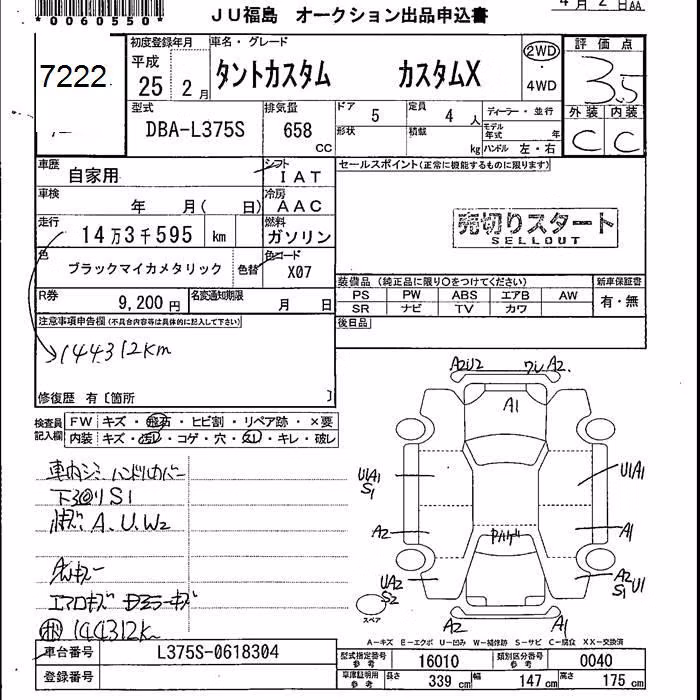 *0060550*
ＪＵ福島　オークション出品申込書
4月2日AA
7222
初度登録年月
平成
25 2月
車名・グレード
タントカスタム　カスタムX
2WD
・
4WD
評価点
3.5
外装 内装
C C
型式
DBA-L375S
排気量
658
CC
ドア 5
定員 4人
ディーラー・並行
形状
積載 kg
モデル年式 年
ハンドル 左・右
車歴
自家用
シフト
IAT
セールスポイント(正常に機能するものに限ります)
車検
年 月( 日)
冷房
AAC
走行
14万3千595 km
燃料
ガソリン
売切りスタート
SELLOUT
色
ブラックマイカメタリック
色替
色コード
X07
R券
9,200円
名変通知期限
月 日
装備品 (純正品に限り○をつけてください)
新車保証書
PS PW ABS エアB AW
SR ナビ TV カワ
有・無
注意事項申告欄(不具合内容等は具体的に記入して下さい)
後日品
144312km
修復歴 有〔箇所 〕
検査員記入欄
FW キズ・飛石・ヒビ割・リペア跡・×要
内装 キズ・汚レ・コゲ・穴・スレ・キレ・破レ
車内シミ ハンドルカバー
S1
A.U.W2
144312K
A2U2 A2
A1
UA1
S1
U1A1
A2
A1
UA2
S2
A2
S1U1
A2 A1
スペア
A-キズ E-エクボ U-凹み W-補修跡 S-サビ C-腐食 XX-交換済
車台番号
L375S-0618304
型式指定番号
参考
16010
類別区分番号
参考
0040
登録番号
車庫証明用
参考
長さ 339 cm 幅 147 cm 高さ 175 cm